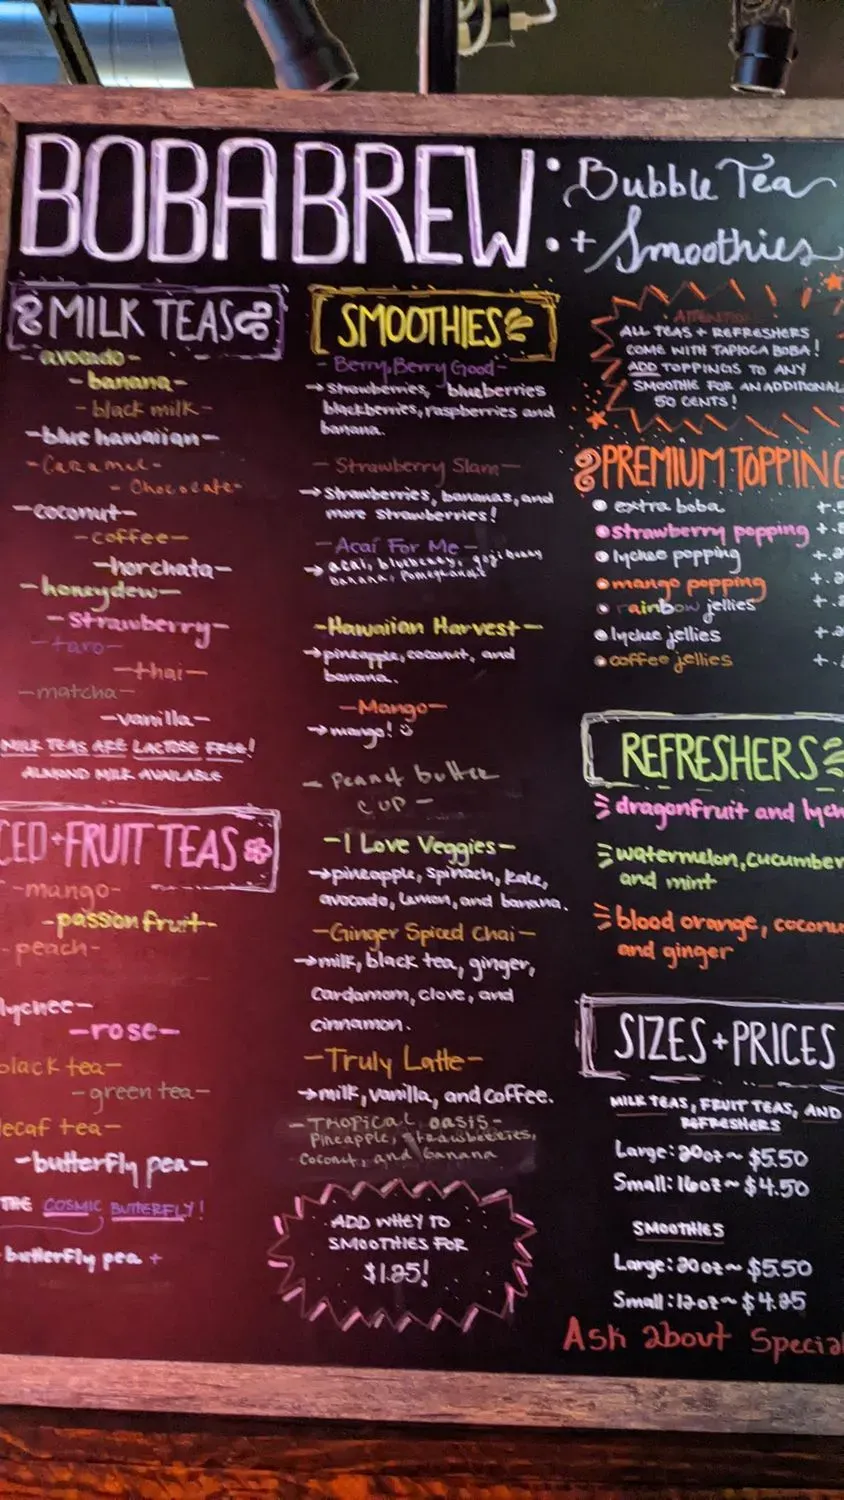 BOBABREW
Bubble Tea
+ Smoothies
MILK TEAS
- avocado -
- banana -
- black milk -
- blue hawaiian -
- Caramel -
- Chocolate -
- coconut -
- coffee -
- horchata -
- honeydew -
- strawberry -
- taro -
- thai -
- matcha -
- vanilla -
MILK TEAS ARE LACTOSE FREE!
ALMOND MILK AVAILABLE
CED + FRUIT TEAS
- mango -
- passion fruit -
- peach -
lychee -
- rose -
black tea -
- green tea -
decaf tea -
- butterfly pea -
THE COSMIC BUTTERFLY!
butterfly pea +
SMOOTHIES
- Berry, Berry Good -
→ strawberries, blueberries
blackberries, raspberries and
banana.
- Strawberry Slam -
→ strawberries, bananas, and
more strawberries!
- Acaí For Me -
→ acai, blueberry, goji berry
banana, pomegranate
- Hawaiian Harvest -
→ pineapple, coconut, and
banana.
- Mango -
→ mango! ☺
- Peanut butter
cup -
- I Love Veggies -
→ pineapple, spinach, kale,
avocado, lemon, and banana.
- Ginger Spiced Chai -
→ milk, black tea, ginger,
cardamom, clove, and
cinnamon.
- Truly Latte -
→ milk, vanilla, and coffee.
- TROPICAL OASIS -
Pineapple, strawberries,
coconut, and banana
ADD WHEY TO
SMOOTHIES FOR
$1.25!
ATTENTION
ALL TEAS + REFRESHERS
COME WITH TAPIOCA BOBA!
ADD TOPPINGS TO ANY
SMOOTHIE FOR AN ADDITIONAL
50 CENTS!
PREMIUM TOPPING
extra boba +.5
strawberry popping +.5
lychee popping +.
mango popping +.
rainbow jellies +.
lychee jellies +.
coffee jellies +.
REFRESHERS
dragonfruit and lych
watermelon, cucumber
and mint
blood orange, coconu
and ginger
SIZES + PRICES
MILK TEAS, FRUIT TEAS, AND
REFRESHERS
Large: 20oz ~ $5.50
Small: 16oz ~ $4.50
SMOOTHIES
Large: 20oz ~ $5.50
Small: 12oz ~ $4.25
Ask about Special